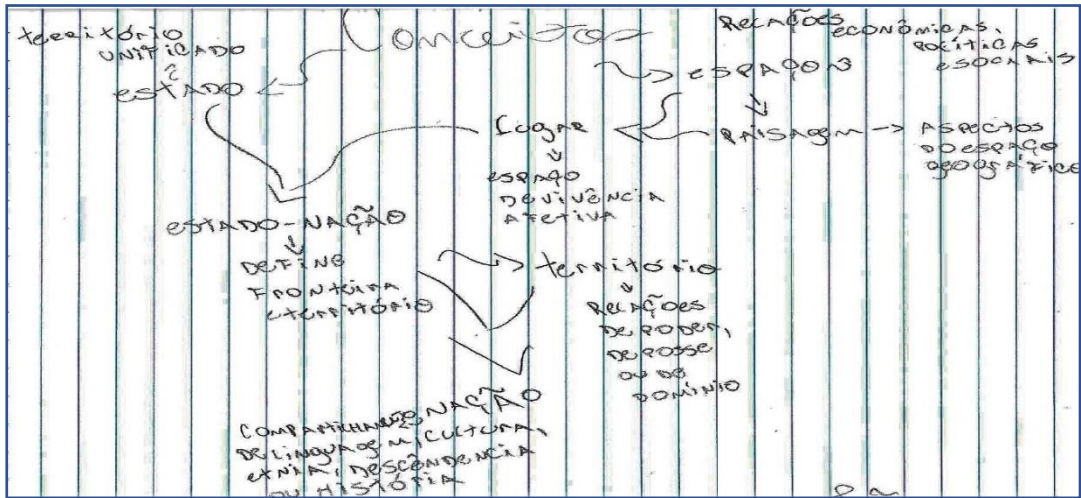 Conceitos
território
UNIFICADO
ESTADO
RELAÇÕES
ECONÔMICAS,
POLÍTICAS
E SOCIAIS
ESPAÇO
LUGAR
ESPAÇO
DE VIVÊNCIA
AFETIVA
PAISAGEM → ASPECTOS
DO ESPAÇO
GEOGRÁFICO
ESTADO-NAÇÃO
DEFINE
FRONTEIRA
E TERRITÓRIO
território
RELAÇÕES
DE PODER,
DE POSSE
OU DE
DOMÍNIO
NAÇÃO
DE LINGUAGEM, CULTURA,
ETNIA, DESCÊNDENCIA
OU HISTÓRIA